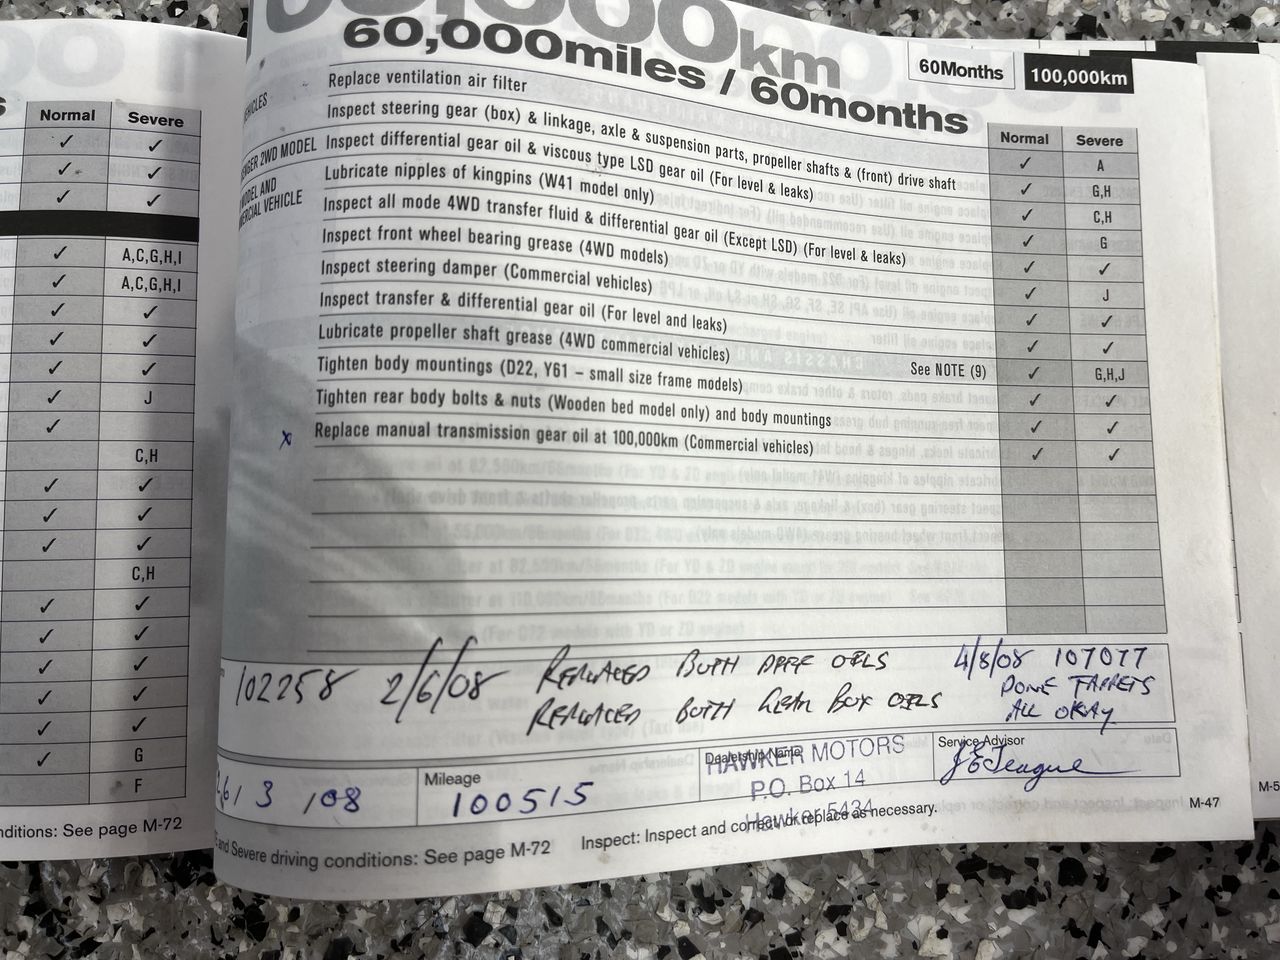 Normal Severe
✓ ✓
✓ ✓
✓ ✓
✓ A,C,G,H,I
✓ A,C,G,H,I
✓ ✓
✓ ✓
✓ ✓
✓ J
✓
C,H
✓ ✓
✓ ✓
✓ ✓
C,H
✓ ✓
✓ ✓
✓ ✓
✓ ✓
✓ ✓
✓ G
F
nditions: See page M-72
km
60,000miles / 60months
60Months 100,000km
Normal Severe
Replace ventilation air filter ✓ A
Inspect steering gear (box) & linkage, axle & suspension parts, propeller shafts & (front) drive shaft ✓ G,H
Inspect differential gear oil & viscous type LSD gear oil (For level & leaks) ✓ C,H
Lubricate nipples of kingpins (W41 model only) ✓ G
Inspect all mode 4WD transfer fluid & differential gear oil (Except LSD) (For level & leaks) ✓ ✓
Inspect front wheel bearing grease (4WD models) ✓ J
Inspect steering damper (Commercial vehicles) ✓ ✓
Inspect transfer & differential gear oil (For level and leaks) ✓ ✓
Lubricate propeller shaft grease (4WD commercial vehicles) See NOTE (9) ✓ G,H,J
Tighten body mountings (D22, Y61 – small size frame models) ✓ ✓
Tighten rear body bolts & nuts (Wooden bed model only) and body mountings ✓ ✓
x Replace manual transmission gear oil at 100,000km (Commercial vehicles) ✓ ✓
HICLES
NGER 2WD MODEL
MODEL AND
MERCIAL VEHICLE
102258 2/6/08 REPLACED BOTH DIFF OILS
REPLACED BOTH GEAR BOX OILS
4/8/08 107077
DONE TAPPETS
ALL OKAY
6/3/08
Mileage
100515
Dealership Name
HAWKER MOTORS
P.O. Box 14
Hawker 5434
Service Advisor
and Severe driving conditions: See page M-72
Inspect: Inspect and correct or replace as necessary.
M-47
M-5